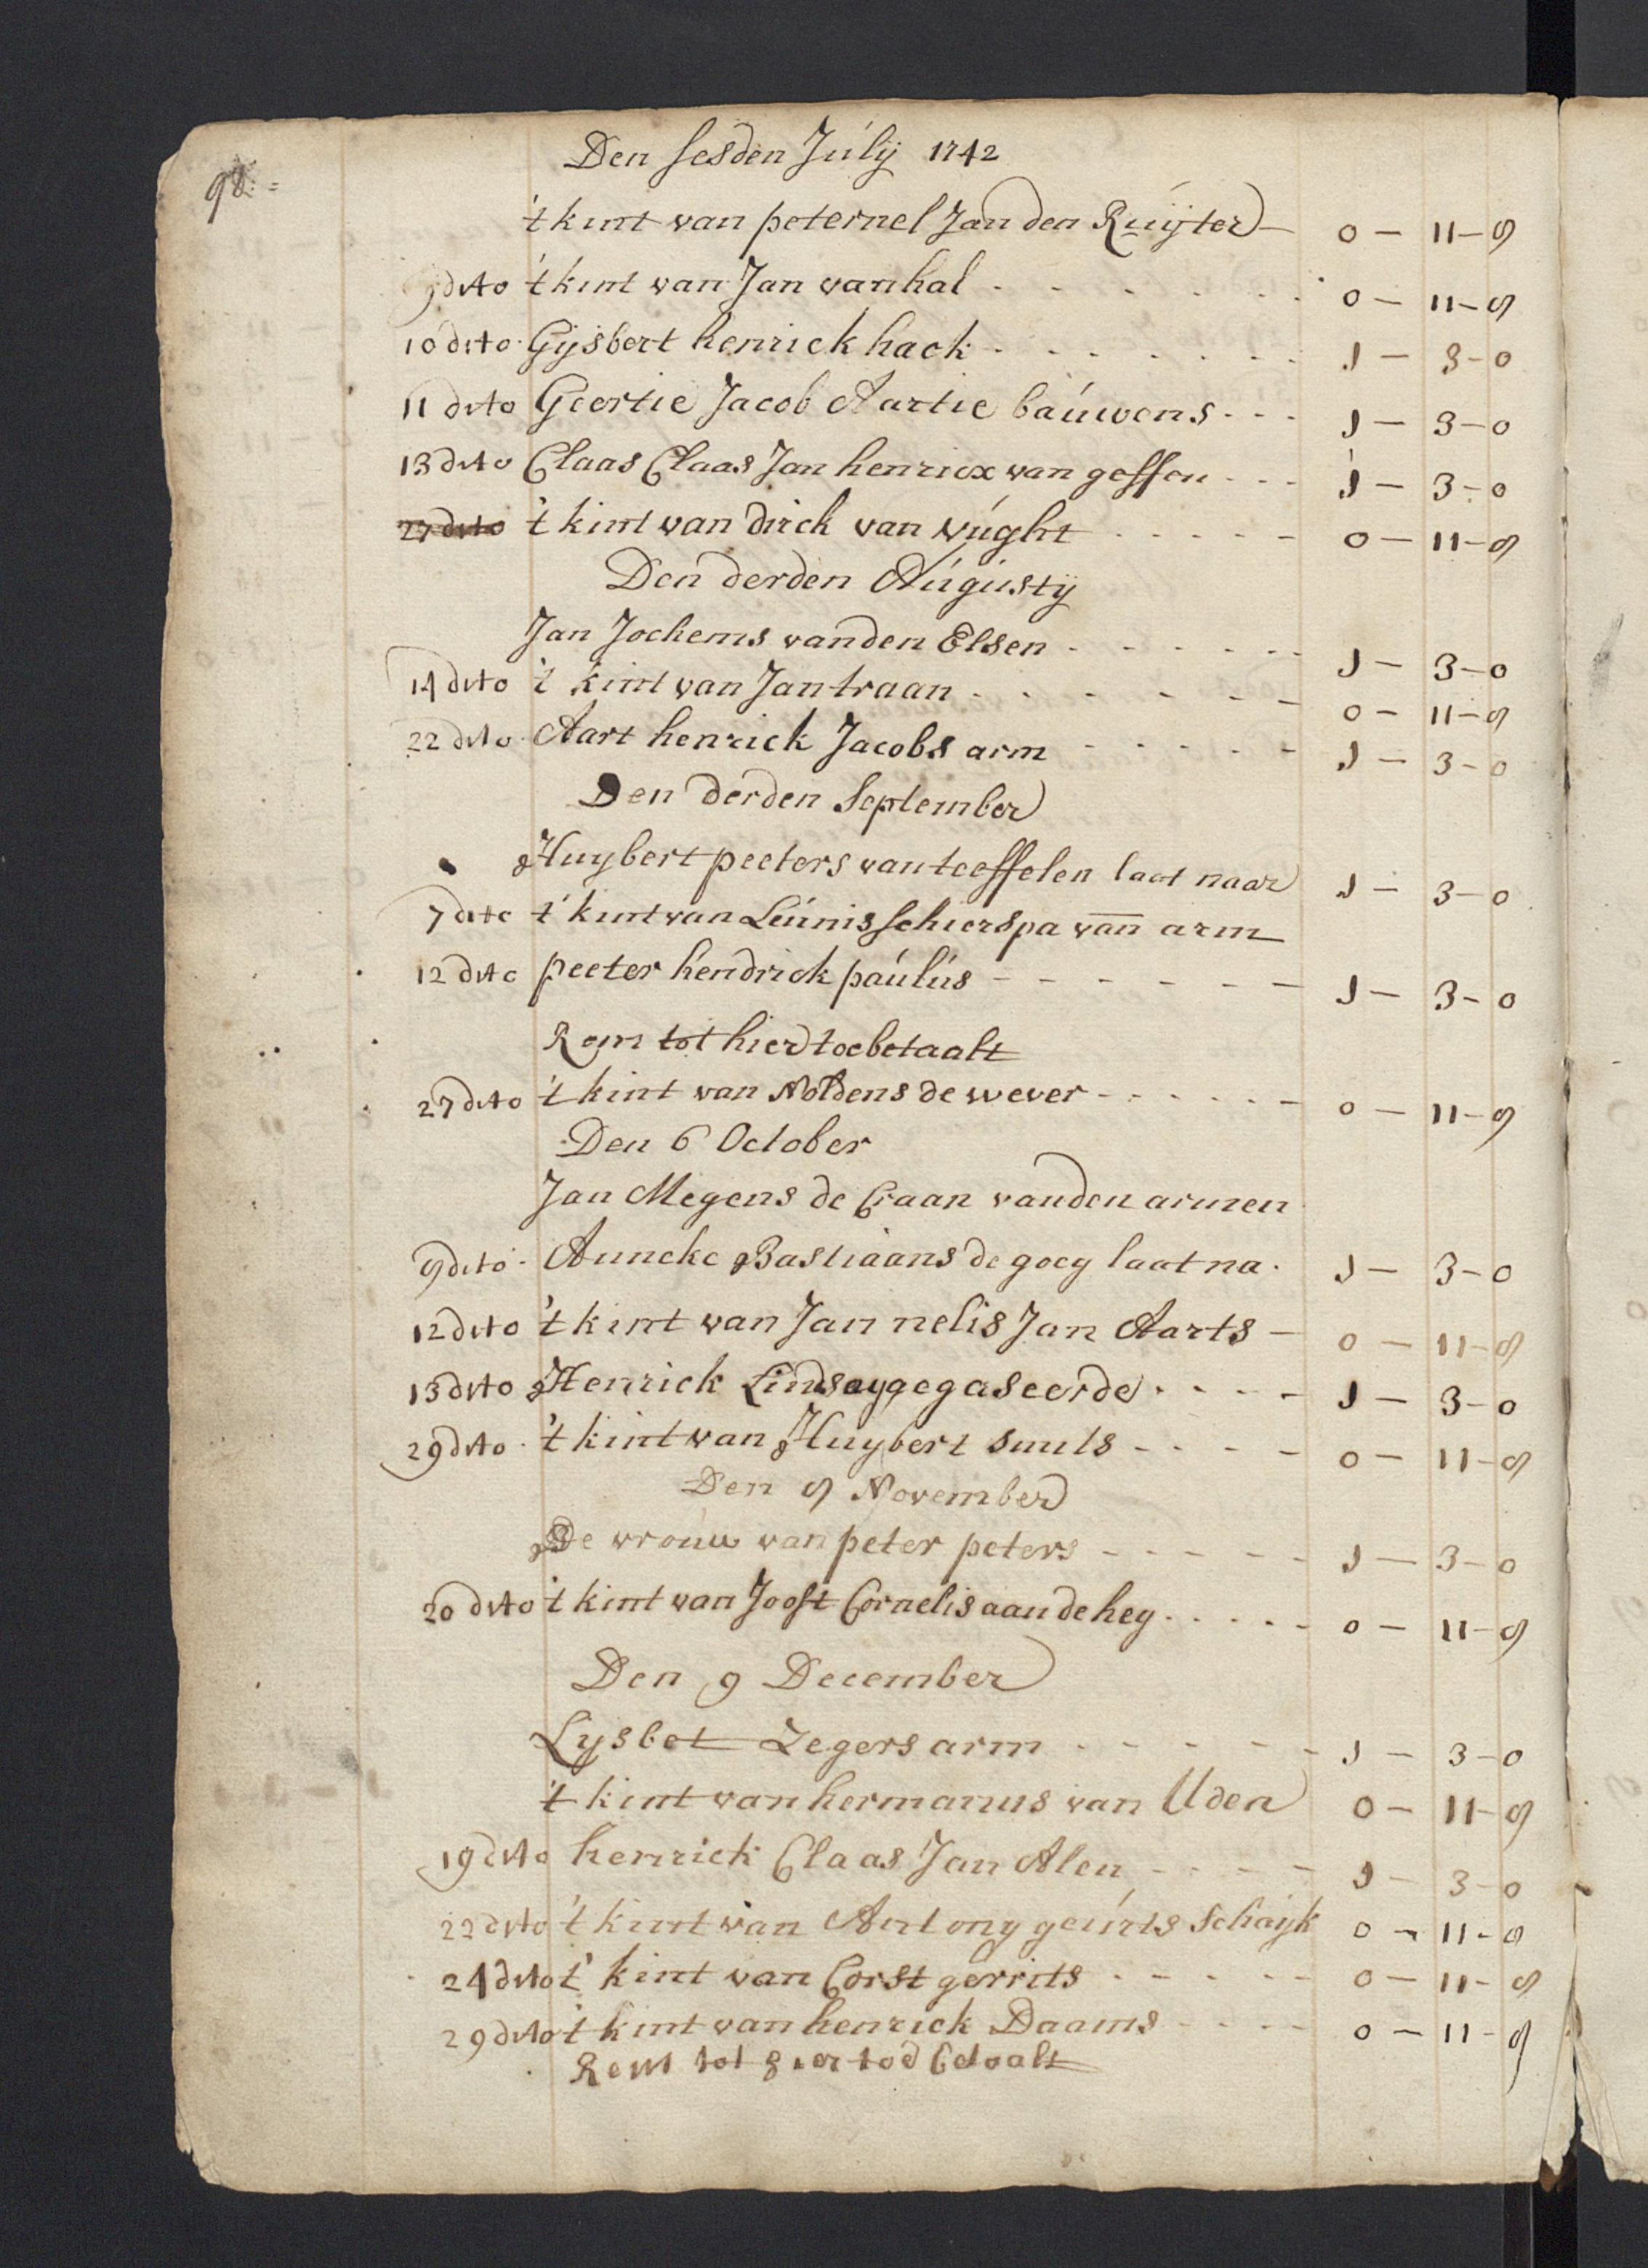 98
Den sesden Júlij 1742
't kint van peternel Jan den Rúijter — 0 — 11 — 9
9 dito 't kint van Jan van hal - - - - - - 0 — 11 — 9
10 dito Gijsbert henrick hack - - - - - - 1 — 3 — 0
11 dito Geertie Jacob Aartie baúwens - - - 1 — 3 — 0
13 dito Claas Claas Jan henricx van geffen - - - 1 — 3 — 0
27 dito 't kint van dirck van vúght - - - - - 0 — 11 — 9
Den derden Aúgústij
Jan Jochems vanden Elsen - - - - - - 1 — 3 — 0
14 dito 't kint van Jan traan - - - - - - 0 — 11 — 9
22 dito Aart henrick Jacobs arm - - - - - 1 — 3 — 0
Den derden September
Huybert peeters van teeffelen laat naar 1 — 3 — 0
7 dito t' kint van Leúnis schierspa van arm
12 dito peeter hendrick paúlús - - - - - - 1 — 3 — 0
Rem tot hier toe betaalt
27 dito 't kint van Noldens de wever - - - - - - 0 — 11 — 9
Den 6 October
Jan Megens de Craan vanden armen
9 dito Anneke Bastiaans de goey laat na 1 — 3 — 0
12 dito 't kint van Jan nelis Jan Aarts — 0 — 11 — 9
13 dito Henrick gegaseerde - - - - 1 — 3 — 0
29 dito 't kint van Huybert smits - - - - 0 — 11 — 9
Den 9 November
De vrouw van peter peters - - - - - 1 — 3 — 0
20 dito 't kint van Joost Cornelis aan de hey - - - - - 0 — 11 — 9
Den 9 December
Lysbet Zegers arm - - - - - 1 — 3 — 0
't kint van hermanus van Uden 0 — 11 — 9
19 dito henrick Claas Jan Alen - - - - 1 — 3 — 0
22 dito 't kint van Antony geúrts Schaijk 0 — 11 — 9
24 dito t' kint van Corst gerrits - - - - - 0 — 11 — 9
29 dito 't kint van henrick Daams - - - - 0 — 11 — 9
Rem tot hier toe betaalt